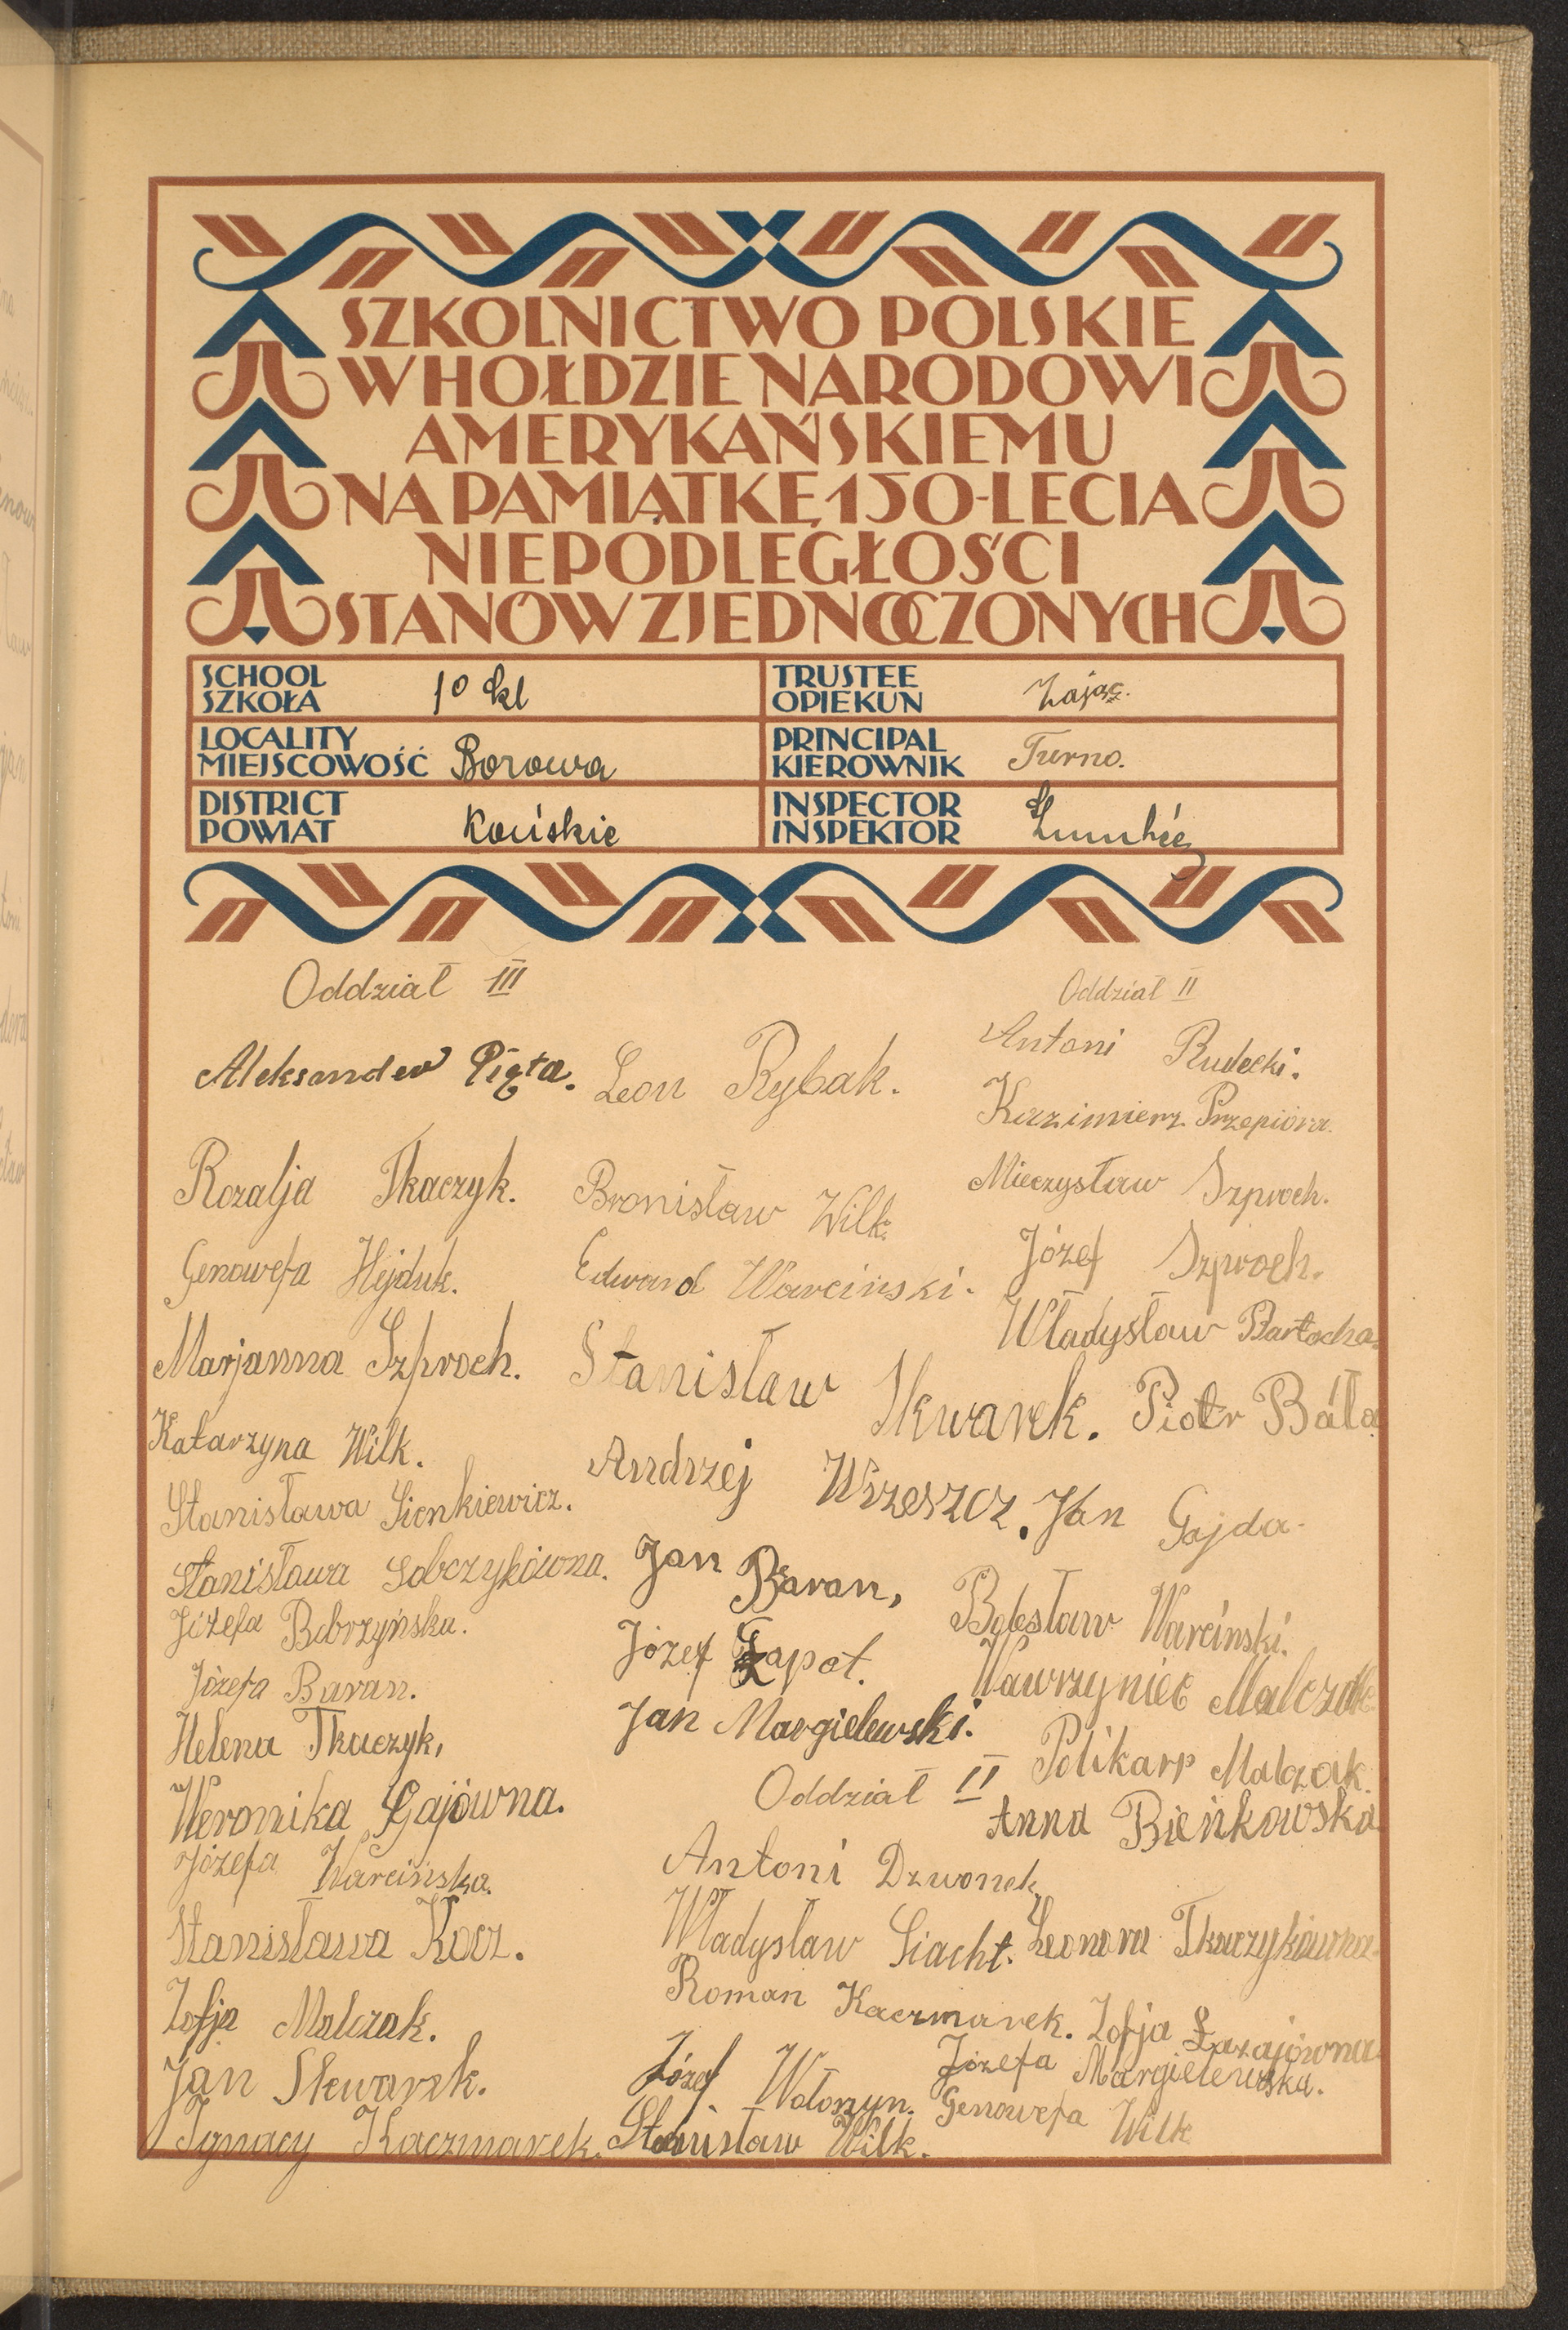 SZKOLNICTWO POLSKIE
W HOŁDZIE NARODOWI
AMERYKAŃSKIEMU
NA PAMIĄTKĘ 150-LECIA
NIEPODLEGŁOŚCI
STANÓW ZJEDNOCZONYCH
SCHOOL
SZKOŁA 1º kl
TRUSTEE
OPIEKUN Zając.
LOCALITY
MIEJSCOWOŚĆ Borowa
PRINCIPAL
KIEROWNIK Turno.
DISTRICT
POWIAT Końskie
INSPECTOR
INSPEKTOR
Oddział III
Aleksander Pięta.
Rozalja Tkaczyk.
Genowefa Hejduk.
Marjanna Szproch.
Katarzyna Wilk.
Stanisława Sienkiewicz.
Stanisława Sobczykówna.
Józefa Bobrzyńska.
Józefa Baran.
Helena Tkaczyk,
Weronika Gajówna.
Józefa Warcińska.
Stanisława Kocz.
Zofja Malczak.
Jan Skwarek.
Ignacy Kaczmarek.
Leon Rybak.
Bronisław Wilk.
Edward Warciński.
Stanisław Skwarek.
Andrzej Wrzeszcz.
Jan Baran,
Józef Łapot.
Jan Margielewski.
Oddział II
Antoni Dzwonek.
Władysław Siacht.
Roman Kaczmarek.
Józef Wołoszyn.
Stanisław Wilk.
Oddział II
Antoni Rudecki.
Kazimierz Przepióra.
Mieczysław Szproch.
Józef Szproch.
Władysław Bartocha.
Piotr Bąła
Jan Gajda.
Bolesław Warciński.
Wawrzyniec Malczak
Polikarp Malczak.
Anna Bieńkowska
Leonora Tkaczykówna.
Zofja Łazajówna.
Józefa Margielewska.
Genowefa Wilk